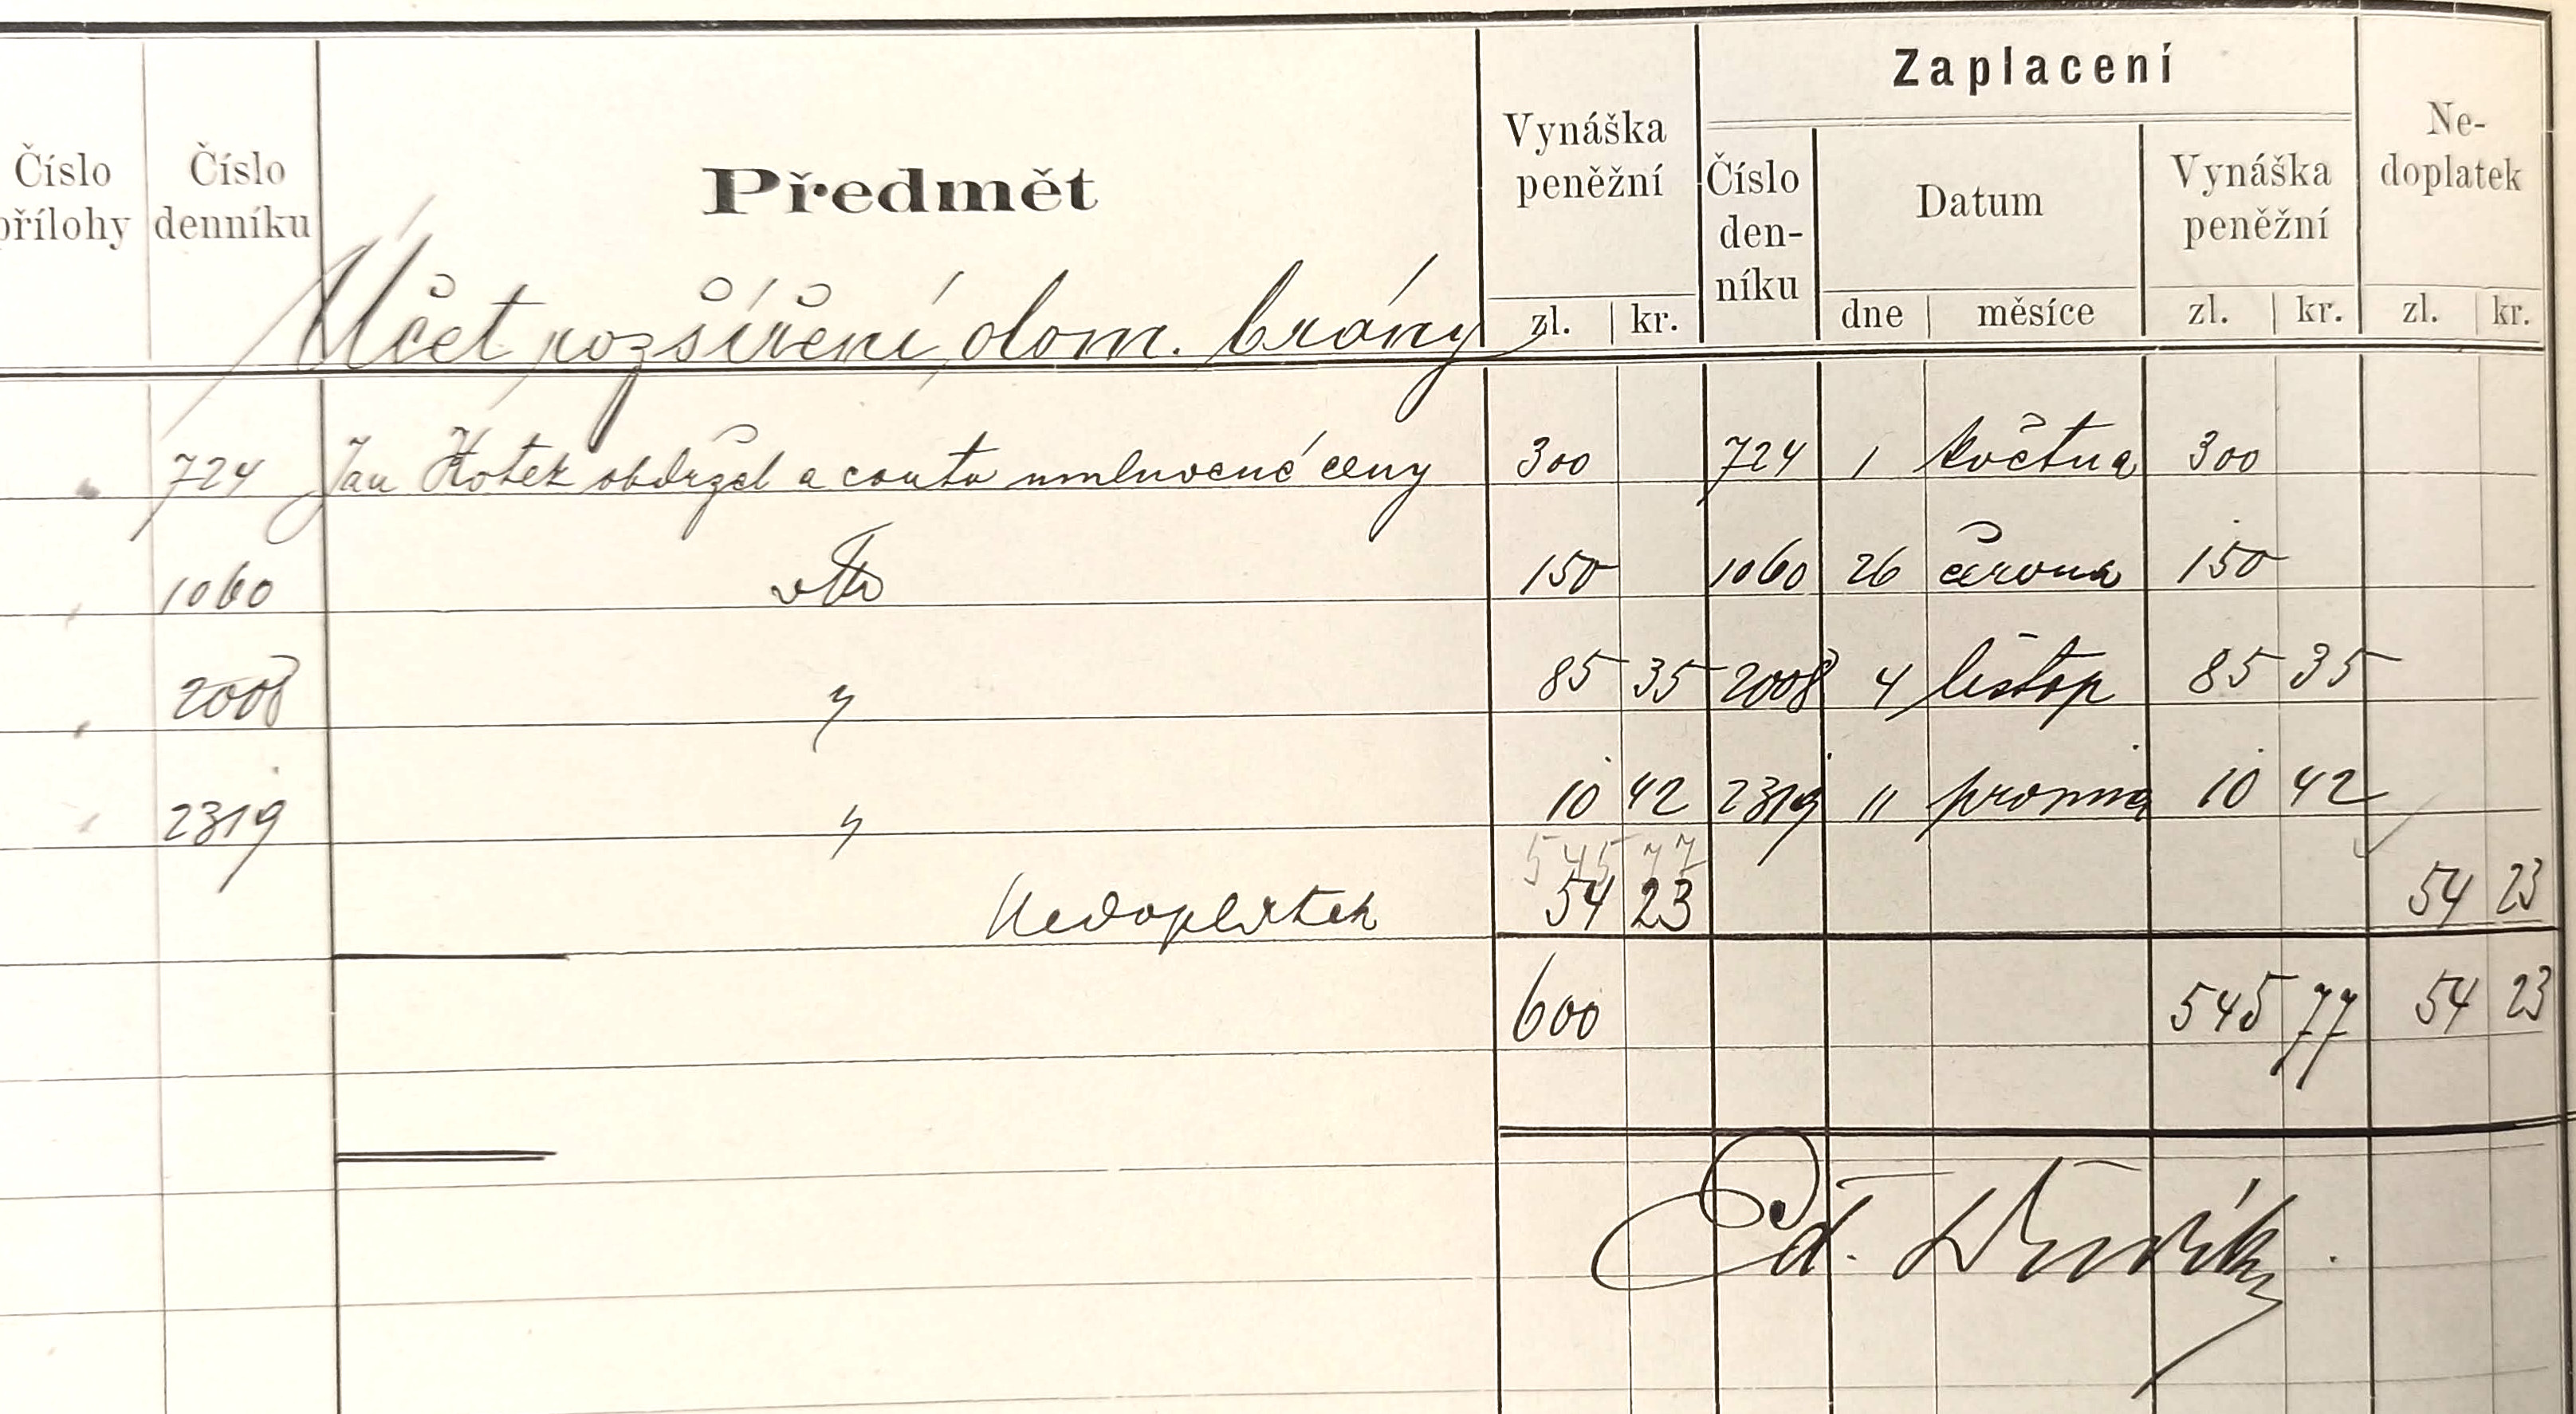 Zaplacení
Číslo přílohy
Číslo denníku
Předmět
Vynáška peněžní
Číslo den-níku
Datum
Vynáška peněžní
Ne-doplatek
zl. kr. dne měsíce zl. kr. zl. kr.
Účet rozšíření dom. brány
724 Jan Kotek obdržel a conto umluvené ceny 300 724 1 května 300
1060 150 1060 26 června 150
2008 " 85 35 2008 4 listop 85 35
2319 " 10 42 2319 11 prosince 10 42
545 77
Nedoplatek 54 23 54 23
600 545 77 54 23
Ed.